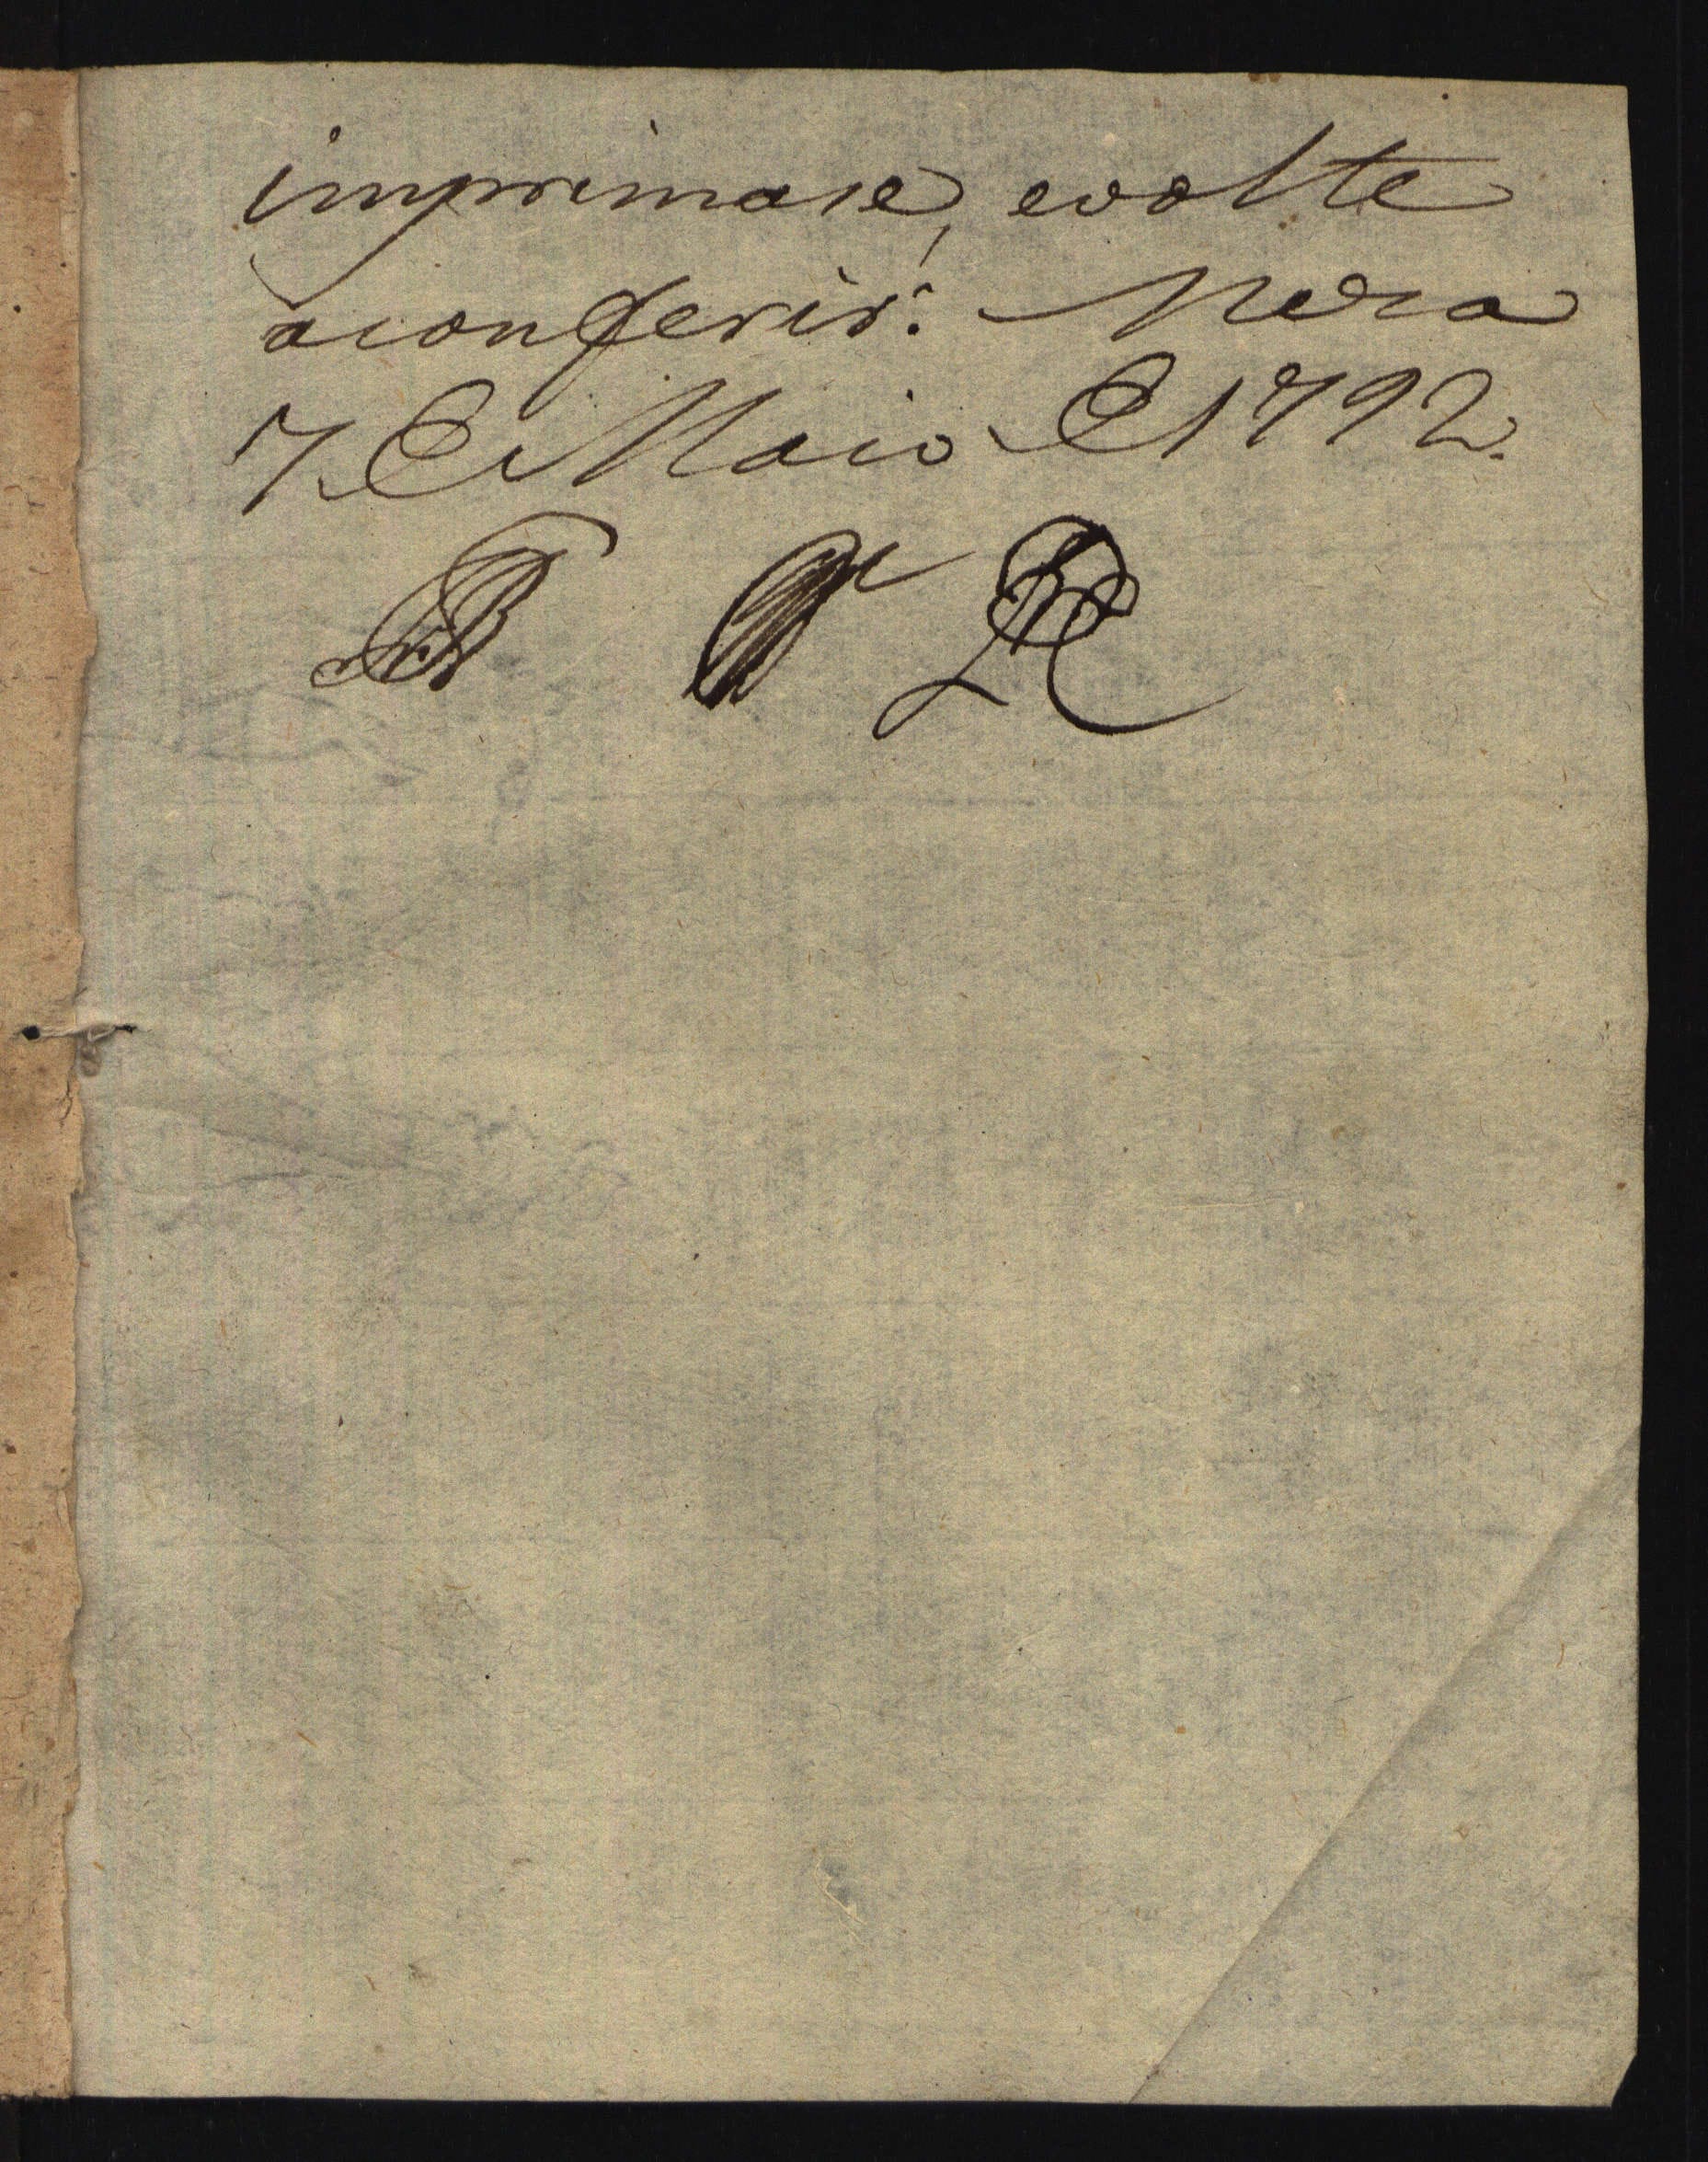 imprimase, evolte
aconferir. Meza
7 de Maio de 1792.